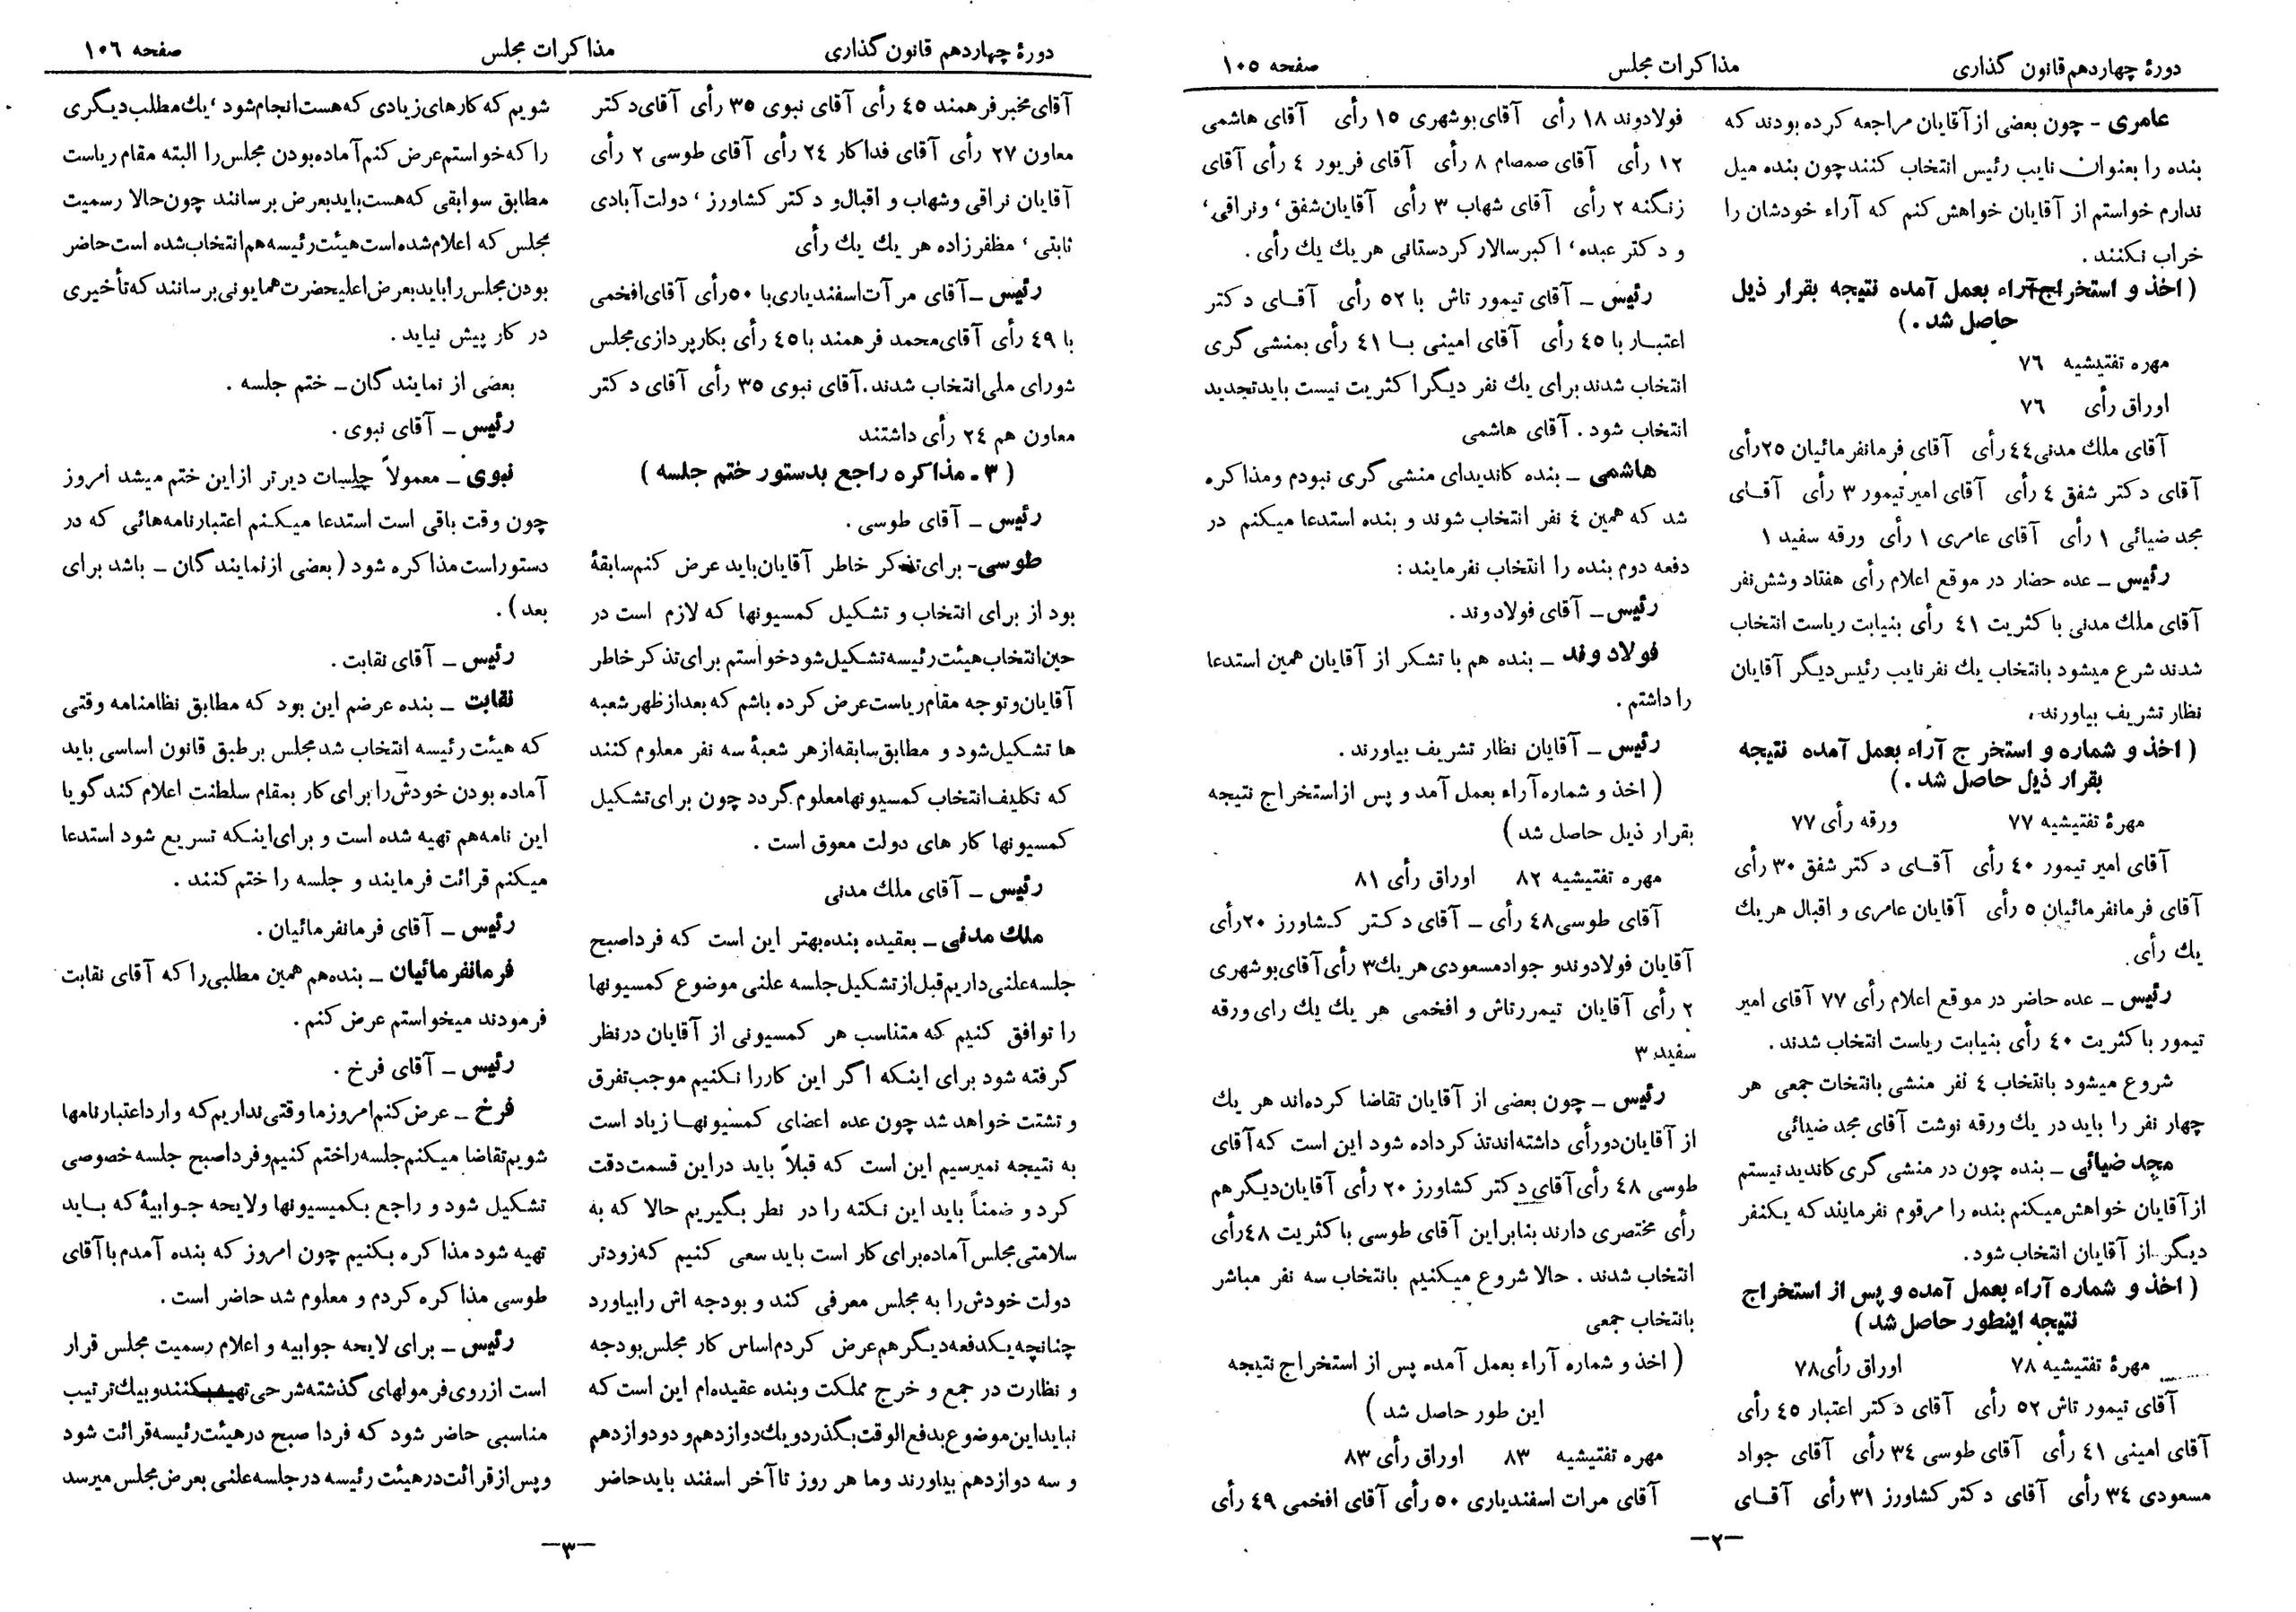 دورهٔ چهاردهم قانون گذاری
مذاکرات مجلس
صفحه ۱۰۵
عامری - چون بعضی از آقایان مراجعه کرده بودند که
بنده را بعنوان نایب رئیس انتخاب کنند چون بنده میل
ندارم خواستم از آقایان خواهش کنم که آراء خودشان را
خراب نکنند .
( اخذ و استخراج آراء بعمل آمده نتیجه بقرار ذیل
حاصل شد . )
مهره تفتیشیه ۷٦
اوراق رأی ۷٦
آقای ملك مدنی ٤٤ رأی آقای فرمانفرمائیان ۲٥ رأی
آقای دکتر شفق ٤ رأی آقای امیرتیمور ۳ رأی آقای
مجد ضیائی ۱ رأی آقای عامری ۱ رأی ورقه سفید ۱
رئیس ـ عده حضار در موقع اعلام رأی هفتاد وشش نفر
آقای ملك مدنی با کثریت ٤۱ رأی بنیابت ریاست انتخاب
شدند شرع میشود بانتخاب یك نفر نایب رئیس دیگر آقایان
نظار تشریف بیاورند.
( اخذ و شماره و استخر ج آراء بعمل آمده نتیجه
بقرار ذیل حاصل شد . )
مهرهٔ تفتیشیه ۷۷ ورقه رأی ۷۷
آقای امیر تیمور ٤۰ رأی آقای دکتر شفق ۳۰ رأی
آقای فرمانفرمائیان ٥ رأی آقایان عامری و اقبال هر یك
یك رأی .
رئیس ـ عده حاضر در موقع اعلام رأی ۷۷ آقای امیر
تیمور با کثریت ٤۰ رأی بنیابت ریاست انتخاب شدند .
شروع میشود بانتخاب ٤ نفر منشی بانتخات جمعی هر
چهار نفر را باید در یك ورقه نوشت آقای مجد ضیائی
مجد ضیائی ـ بنده چون در منشی گری کاندید نیستم
از آقایان خواهش میکنم بنده را مرقوم نفرمایند که یکنفر
دیگر از آقایان انتخاب شود.
( اخذ و شماره آراء بعمل آمده و پس از استخراج
نتیجه اینطور حاصل شد )
مهرهٔ تفتیشیه ۷۸ اوراق رأی ۷۸
آقای تیمور تاش ٥۲ رأی آقای دکتر اعتبار ٤٥ رأی
آقای امینی ٤۱ رأی آقای طوسی ۳٤ رأی آقای جواد
مسعودی ۳٤ رأی آقای دکتر کشاورز ۳۱ رأی آقای
فولادوند ۱۸ رأی آقای بوشهری ۱٥ رأی آقای هاشمی
۱۲ رأی آقای صمصام ۸ رأی آقای فریور ٤ رأی آقای
زنگنه ۲ رأی آقای شهاب ۳ رأی آقایان شفق ، ونراقی ،
و دکتر عبده ، اکبر سالار کردستانی هر یك یك رأی .
رئیس ـ آقای تیمور تاش با ٥۲ رأی آقای دکتر
اعتبار با ٤٥ رأی آقای امینی با ٤۱ رأی بمنشی گری
انتخاب شدند برای یك نفر دیگر اکثریت نیست باید تجدید
انتخاب شود . آقای هاشمی
هاشمی ـ بنده کاندیدای منشی گری نبودم ومذاکره
شد که همین ٤ نفر انتخاب شوند و بنده استدعا میکنم در
دفعه دوم بنده را انتخاب نفرمایند :
رئیس ـ آقای فولادوند .
فولادوند ـ بنده هم با تشکر از آقایان همین استدعا
را داشتم .
رئیس ـ آقایان نظار تشریف بیاورند .
( اخذ و شماره آراء بعمل آمد و پس از استخراج نتیجه
بقرار ذیل حاصل شد )
مهره تفتیشیه ۸۲ اوراق رأی ۸۱
آقای طوسی ٤۸ رأی ـ آقای دکتر کشاورز ۲۰ رأی
آقایان فولادوند و جواد مسعودی هر یك ۳ رأی آقای بوشهری
۲ رأی آقایان تیمررتاش و افخمی هر یك یك رای ورقه
سفید ۳
رئیس ـ چون بعضی از آقایان تقاضا کرده‌اند هر یك
از آقایان دو رأی داشته‌اند تذکر داده شود این است که آقای
طوسی ٤۸ رأی آقای دکتر کشاورز ۲۰ رأی آقایان دیگر هم
رأی مختصری دارند بنابراین آقای طوسی با کثریت ٤۸ رأی
انتخاب شدند . حالا شروع میکنیم بانتخاب سه نفر مباشر
بانتخاب جمعی
( اخذ و شماره آراء بعمل آمده پس از استخراج نتیجه
این طور حاصل شد )
مهره تفتیشیه ۸۳ اوراق رأی ۸۳
آقای مرات اسفندیاری ٥۰ رأی آقای افخمی ٤۹ رأی
ـ۲ـ
دورهٔ چهاردهم قانون گذاری
مذاکرات مجلس
صفحه ۱۰٦
آقای مخبر فرهمند ٤٥ رأی آقای نبوی ۳٥ رأی آقای دکتر
معاون ۲۷ رأی آقای فداکار ۲٤ رأی آقای طوسی ۲ رأی
آقایان نراقی وشهاب و اقبال و دکتر کشاورز ، دولت آبادی
ثابتی ، مظفرزاده هر یك یك رأی
رئیس ـ آقای مرآت اسفندیاری با ٥۰ رأی آقای افخمی
با ٤۹ رأی آقای محمد فرهمند با ٤٥ رأی بکار پردازی مجلس
شورای ملی انتخاب شدند . آقای نبوی ۳٥ رأی آقای دکتر
معاون هم ۲٤ رأی داشتند
( ۳ ـ مذاکره راجع بدستور ختم جلسه )
رئیس ـ آقای طوسی .
طوسی ـ برای تذکر خاطر آقایان باید عرض کنم سابقهٔ
بود از برای انتخاب و تشکیل کمسیونها که لازم است در
حین انتخاب هیئت رئیسه تشکیل شود خواستم برای تذکر خاطر
آقایان و توجه مقام ریاست عرض کرده باشم که بعد از ظهر شعبه
ها تشکیل شود و مطابق سابقه از هر شعبهٔ سه نفر معلوم کنند
که تکلیف انتخاب کمسیونها معلوم گردد چون برای تشکیل
کمسیونها کار های دولت معوق است .
رئیس ـ آقای ملك مدنی
ملك مدنی ـ بعقیده بنده بهتر این است که فردا صبح
جلسه علنی داریم قبل از تشکیل جلسه علنی موضوع کمسیونها
را توافق کنیم که متناسب هر کمسیونی از آقایان در نظر
گرفته شود برای اینکه اگر این کار را نکنیم موجب تفرق
و تشتت خواهد شد چون عده اعضای کمسیونها زیاد است
به نتیجه نمیرسیم این است که قبلاً باید در این قسمت دقت
کرد و ضمناً باید این نکته را در نظر بگیریم حالا که به
سلامتی مجلس آماده برای کار است باید سعی کنیم که زودتر
دولت خودش را به مجلس معرفی کند و بودجه اش را بیاورد
چنانچه یکدفعه دیگر هم عرض کردم اساس کار مجلس بودجه
و نظارت در جمع و خرج مملکت وبنده عقیده‌ام این است که
نباید این موضوع بدفع الوقت بگذرد و یك دوازدهم و دو دوازدهم
و سه دوازدهم بیاورند وما هر روز تا آخر اسفند باید حاضر
شویم که کارهای زیادی که هست انجام شود ، یك مطلب دیگری
را که خواستم عرض کنم آماده بودن مجلس را البته مقام ریاست
مطابق سوابقی که هست باید بعرض برسانند چون حالا رسمیت
مجلس که اعلام شده است هیئت رئیسه هم انتخاب شده است حاضر
بودن مجلس را باید بعرض اعلیحضرت همایونی برسانند که تأخیری
در کار پیش نیاید .
بعضی از نمایندگان ـ ختم جلسه .
رئیس ـ آقای نبوی .
نبوی ـ معمولاً جلسات دیرتر از این ختم میشد امروز
چون وقت باقی است استدعا میکنم اعتبارنامه‌هائی که در
دستور است مذاکره شود ( بعضی از نمایندگان ـ باشد برای
بعد ) .
رئیس ـ آقای نقابت .
نقابت ـ بنده عرضم این بود که مطابق نظامنامه وقتی
که هیئت رئیسه انتخاب شد مجلس بر طبق قانون اساسی باید
آماده بودن خودش را برای کار بمقام سلطنت اعلام کند گویا
این نامه هم تهیه شده است و برای اینکه تسریع شود استدعا
میکنم قرائت فرمایند و جلسه را ختم کنند .
رئیس ـ آقای فرمانفرمائیان .
فرمانفرمائیان ـ بنده هم همین مطلبی را که آقای نقابت
فرمودند میخواستم عرض کنم .
رئیس ـ آقای فرخ .
فرخ ـ عرض کنم امروز ما وقتی نداریم که وارد اعتبارنامها
شویم تقاضا میکنم جلسه را ختم کنیم و فردا صبح جلسه خصوصی
تشکیل شود و راجع بکمیسیونها ولایحه جوابیهٔ که باید
تهیه شود مذاکره بکنیم چون امروز که بنده آمدم با آقای
طوسی مذاکره کردم و معلوم شد حاضر است .
رئیس ـ برای لایحه جوابیه و اعلام رسمیت مجلس قرار
است از روی فرمولهای گذشته شرحی تهیه بکنند و بیك ترتیب
مناسبی حاضر شود که فردا صبح در هیئت رئیسه قرائت شود
و پس از قرائت در هیئت رئیسه در جلسه علنی بعرض مجلس میرسد
ـ۳ـ